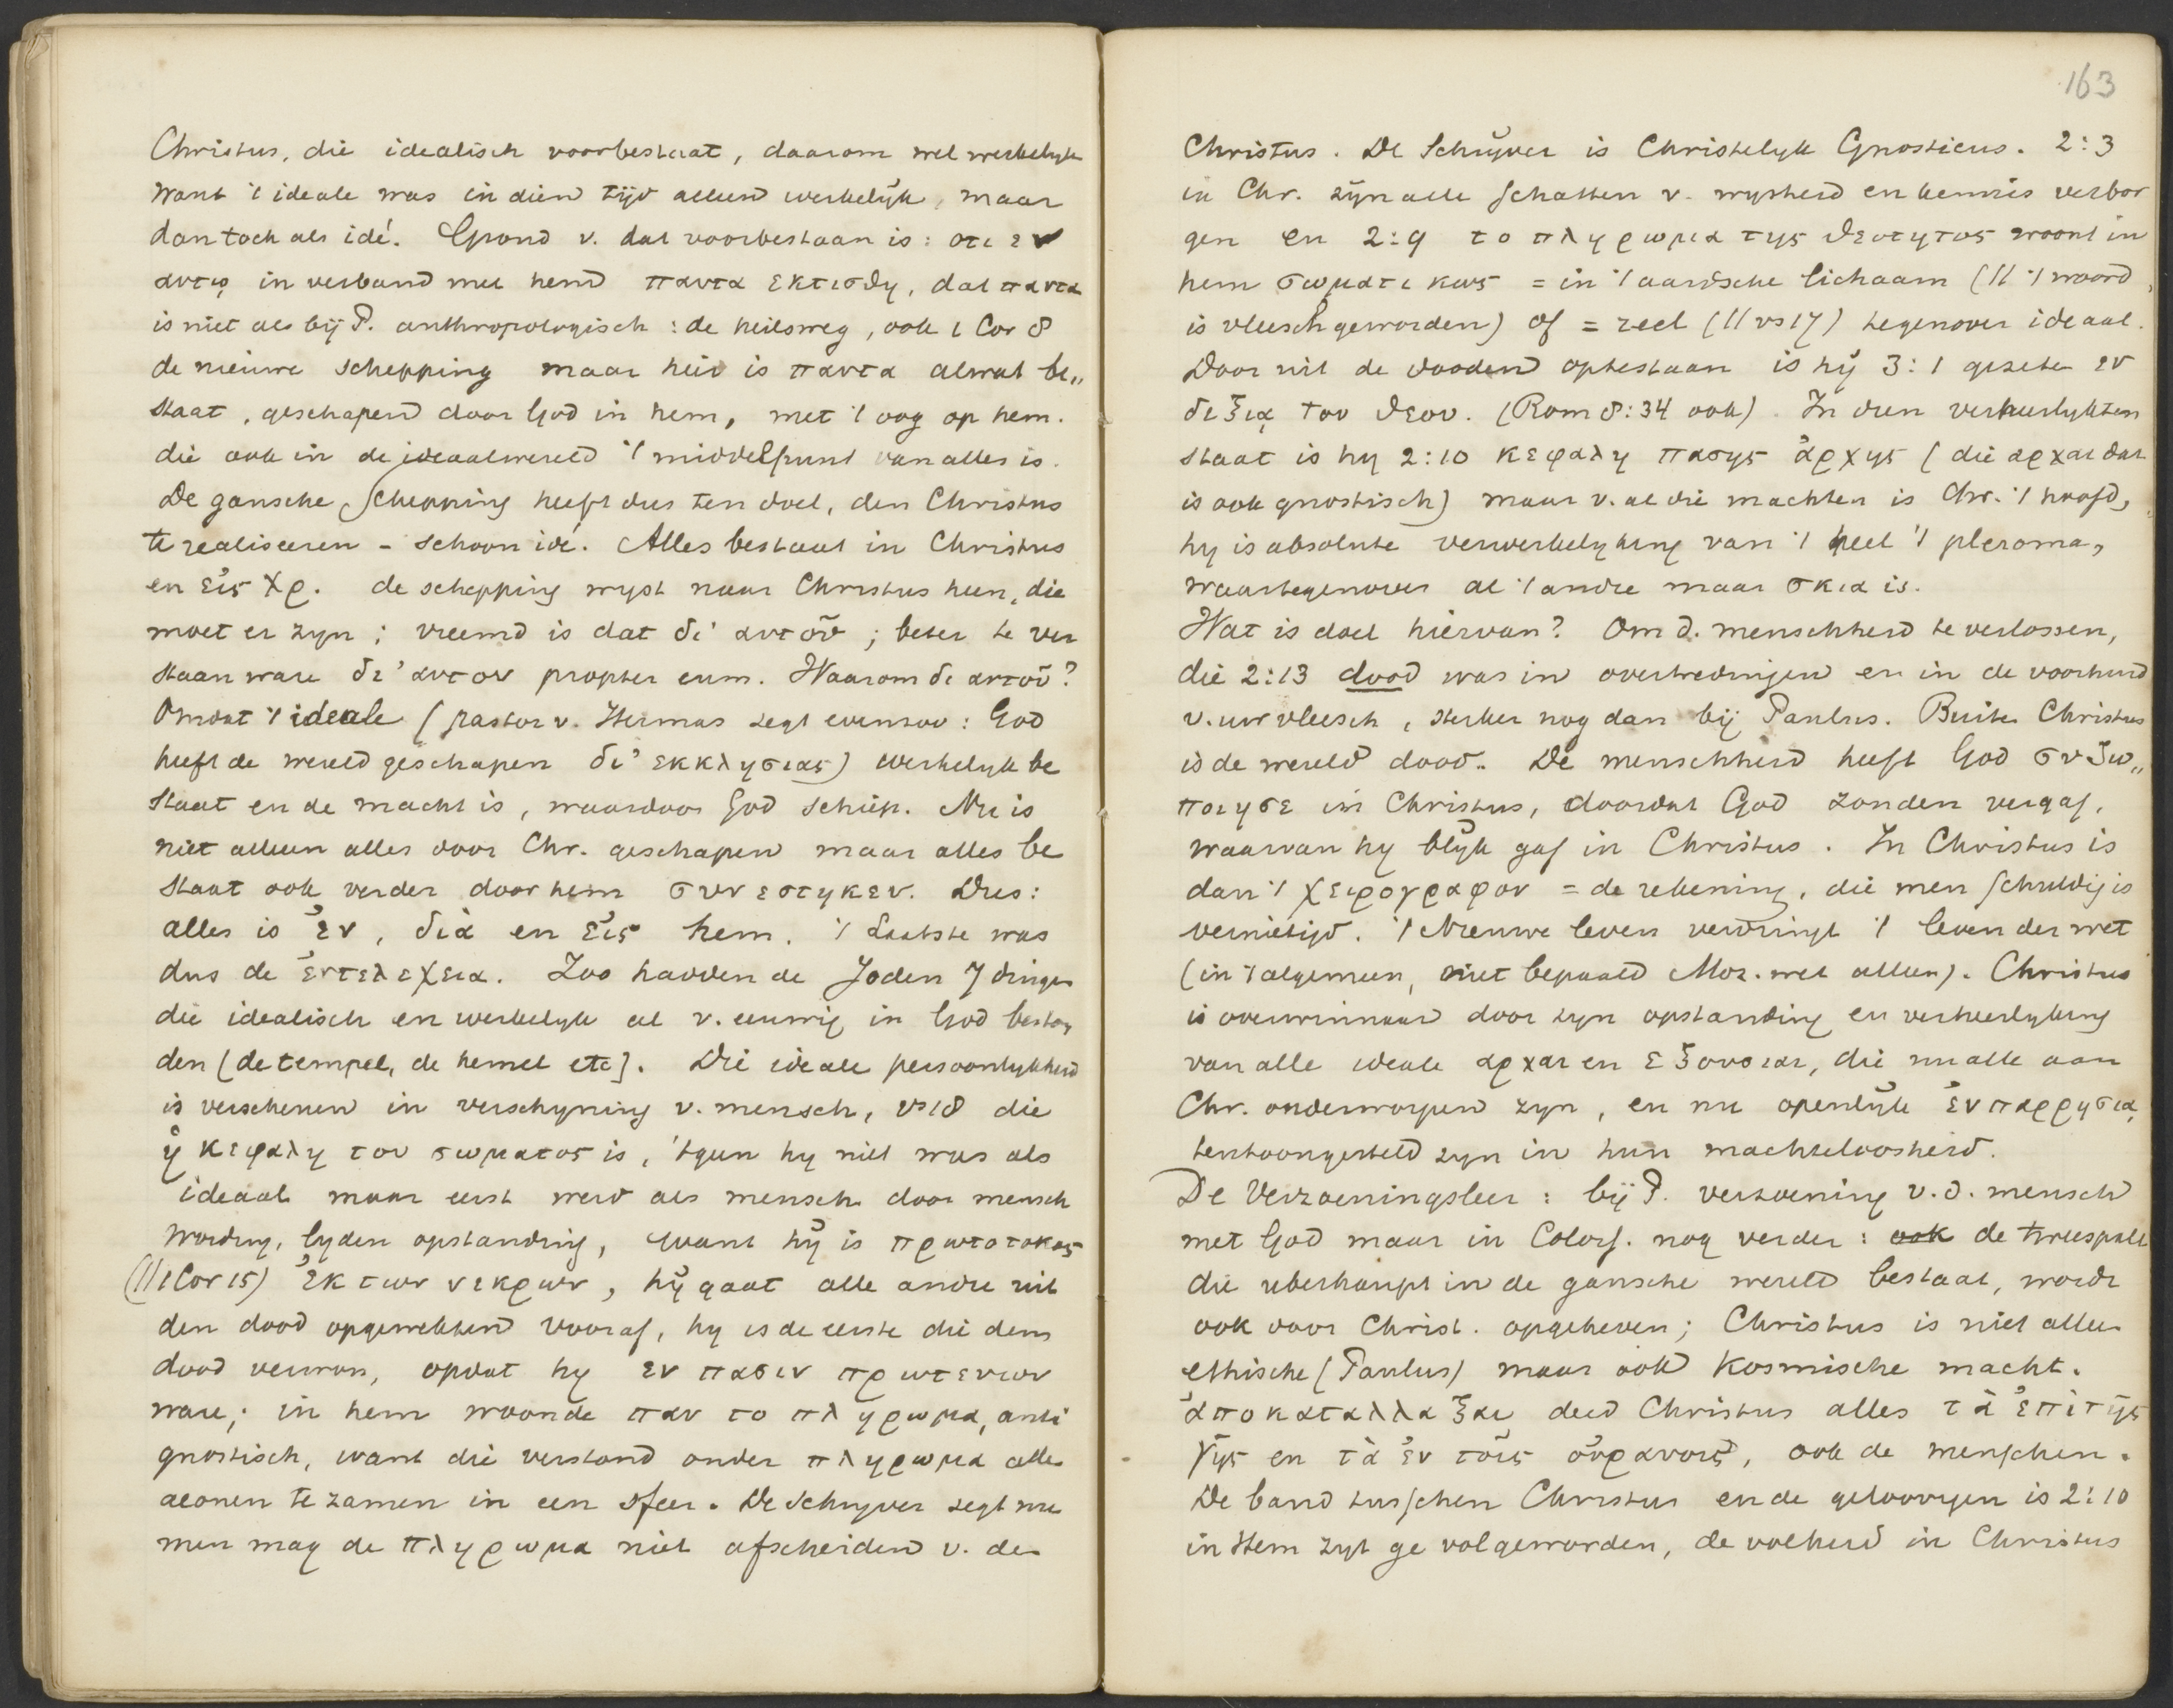 Christus, die idealisch voorbestaat, daarom wel werkelyk
want 't ideale was in dien tijd alleen werkelijk, maar
dan toch als idé. Grond v. dat voorbestaan is: οτι εν
αυτῳ in verband met hem παντα εκτισθη, dat παντα
is niet als bij P. anthropologisch: de heilsweg, ook 1 Cor 8
de nieuwe schepping maar hier is παντα alwat be„
staat, geschapen door God in hem, met 't oog op hem.
die ook in de ideaalwereld 't middelpunt van alles is.
De gansche schepping heeft dus ten doel, den Christus
te realiseeren - schoon idé. Alles bestaat in Christus
en εἰς Χρ. de schepping wyst naar Christus heen, die
moet er zyn; vreemd is dat δι' αυτοῦ; beter te ver
staan ware δι' αυτον propter eum. Waarom δι αυτοῦ?
Omdat 't ideale (pastor v. Hermas zegt evenzoo: God
heeft de wereld geschapen δι' εκκλησιας) werkelyk be
staat en de macht is, waardoor God schiep. Nu is
niet alleen alles door Chr. geschapen maar alles be
staat ook verder door hem συνεστηκεν. Dus:
alles is ἐν, διὰ en εἰς hem. 't Laatste was
dus de ἐντελεχεια. Zoo hadden de Joden 7 dingen
die idealisch en werkelyk al v. eeuwig in God beston
den [de tempel, de hemel etc]. Die ideale persoonlykheid
is verschenen in verschyning v. mensch, vs 18 die
ἡ κεφαλη του σωματος is, 'tgeen hy niet was als
ideaal maar eerst werd als mensch door mensch
wording, lyden opstanding, want hij is πρωτοτοκος
(// 1 Cor 15) ἐκ των νεκρων, hij gaat alle andre uit
den dood opgewekten vooraf, hy is de eerste die den
dood verwon, opdat hy εν πασιν πρωτευων
ware; in hem woonde παν το πληρωμα, anti
gnostisch, want die verstond onder πληρωμα alle
aeonen te zamen in een sfeer. De schryver zegt nu
men mag de πληρωμα niet afscheiden v. den
163
Christus. De Schrijver is Christelyk Gnosticus. 2:3
in Chr. zijn alle schatten v. wysheid en kennis verbor
gen en 2:9 το πληρωμα της θεοτητος woont in
hem σωματικως = in 't aardsche lichaam (// 't woord
is vleesch geworden) of = reeel (// vs 17) tegenover ideaal.
Door uit de dooden optestaan is hij 3:1 gezeten εν
δεξιᾳ του θεου. (Rom 8:34 ook). In dien verheerlykten
staat is hy 2:10 κεφαλη πασης ἀρχης (die αρχαι dat
is ook gnostisch) maar v. al die machten is Chr. 't hoofd,
hy is absolute verwerkelyking van 't heel 't pleroma,
waartegenover al 't andre maar σκια is.
Wat is doel hiervan? Om d. menschheid te verlossen,
die 2:13 dood was in overtredingen en in de voorhuid
v. uw vleesch, sterker nog dan bij Paulus. Buiten Christus
is de wereld dood. De menschheid heeft God συζω„
ποιησε in Christus, doordat God zonden vergaf,
waarvan hy blijk gaf in Christus. In Christus is
dan 't χειρογραφον = de rekening, die men schuldig is
vernietigd. 't Nieuwe leven verdringt 't leven der wet
(in 't algemeen, niet bepaald Moz. wet alleen). Christus
is overwinnaar door zyn opstanding en verheerlyking
van alle ideale αρχαι en εξουσιαι, die nu alle aan
Chr. onderworpen zyn, en nu openlijk ἐν παρρησιᾳ
tentoongesteld zyn in hun machteloosheid.
De Verzoeningsleer: bij P. verzoening v. d. mensch
met God maar in Coloss. nog verder: de tweespalt
die uberhaupt in de gansche wereld bestaat, wordt
ook door Christ. opgeheven; Christus is niet alleen
ethische (Paulus) maar ook kosmische macht.
ἀποκαταλλαξαι deed Christus alles τὰ ἐπὶ τῆς
γῆς en τὰ ἐν τοῖς οὐρανοῖς, ook de menschen.
De band tusschen Christus en de geloovigen is 2:10
in Hem zyt ge vol geworden, de volheid in Christus